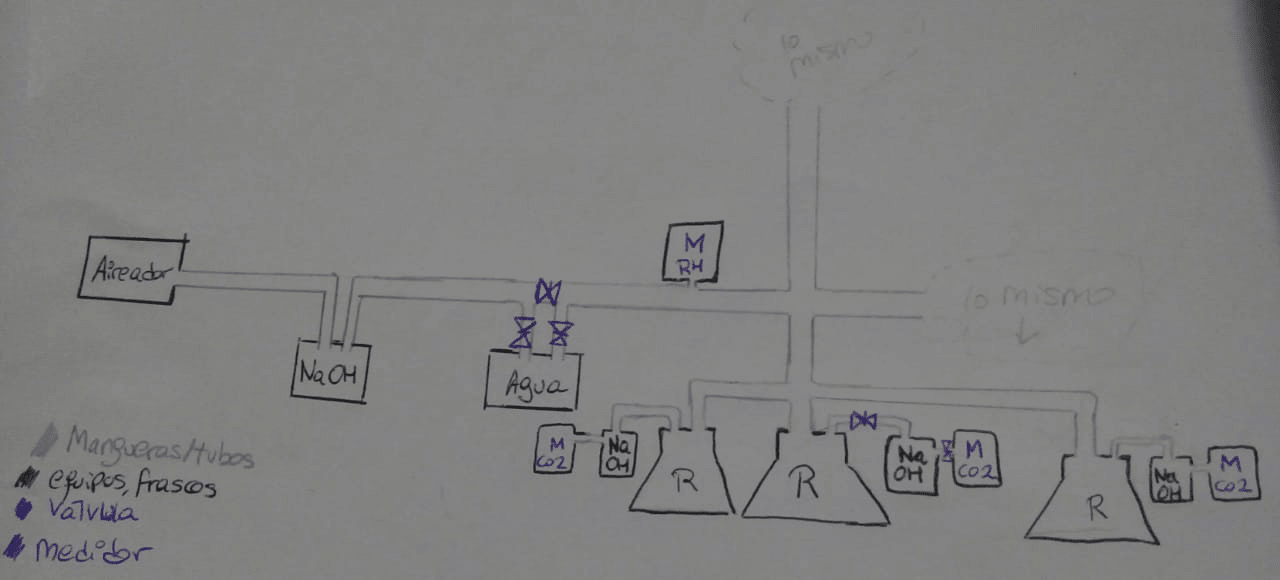 lo
mismo
M
RH
Aireador
lo mismo
NaOH
Agua
M
CO2
Na
OH
R
R
Na
OH
M
CO2
R
Na
OH
M
CO2
Mangueras/tubos
equipos, frascos
Válvula
medidor